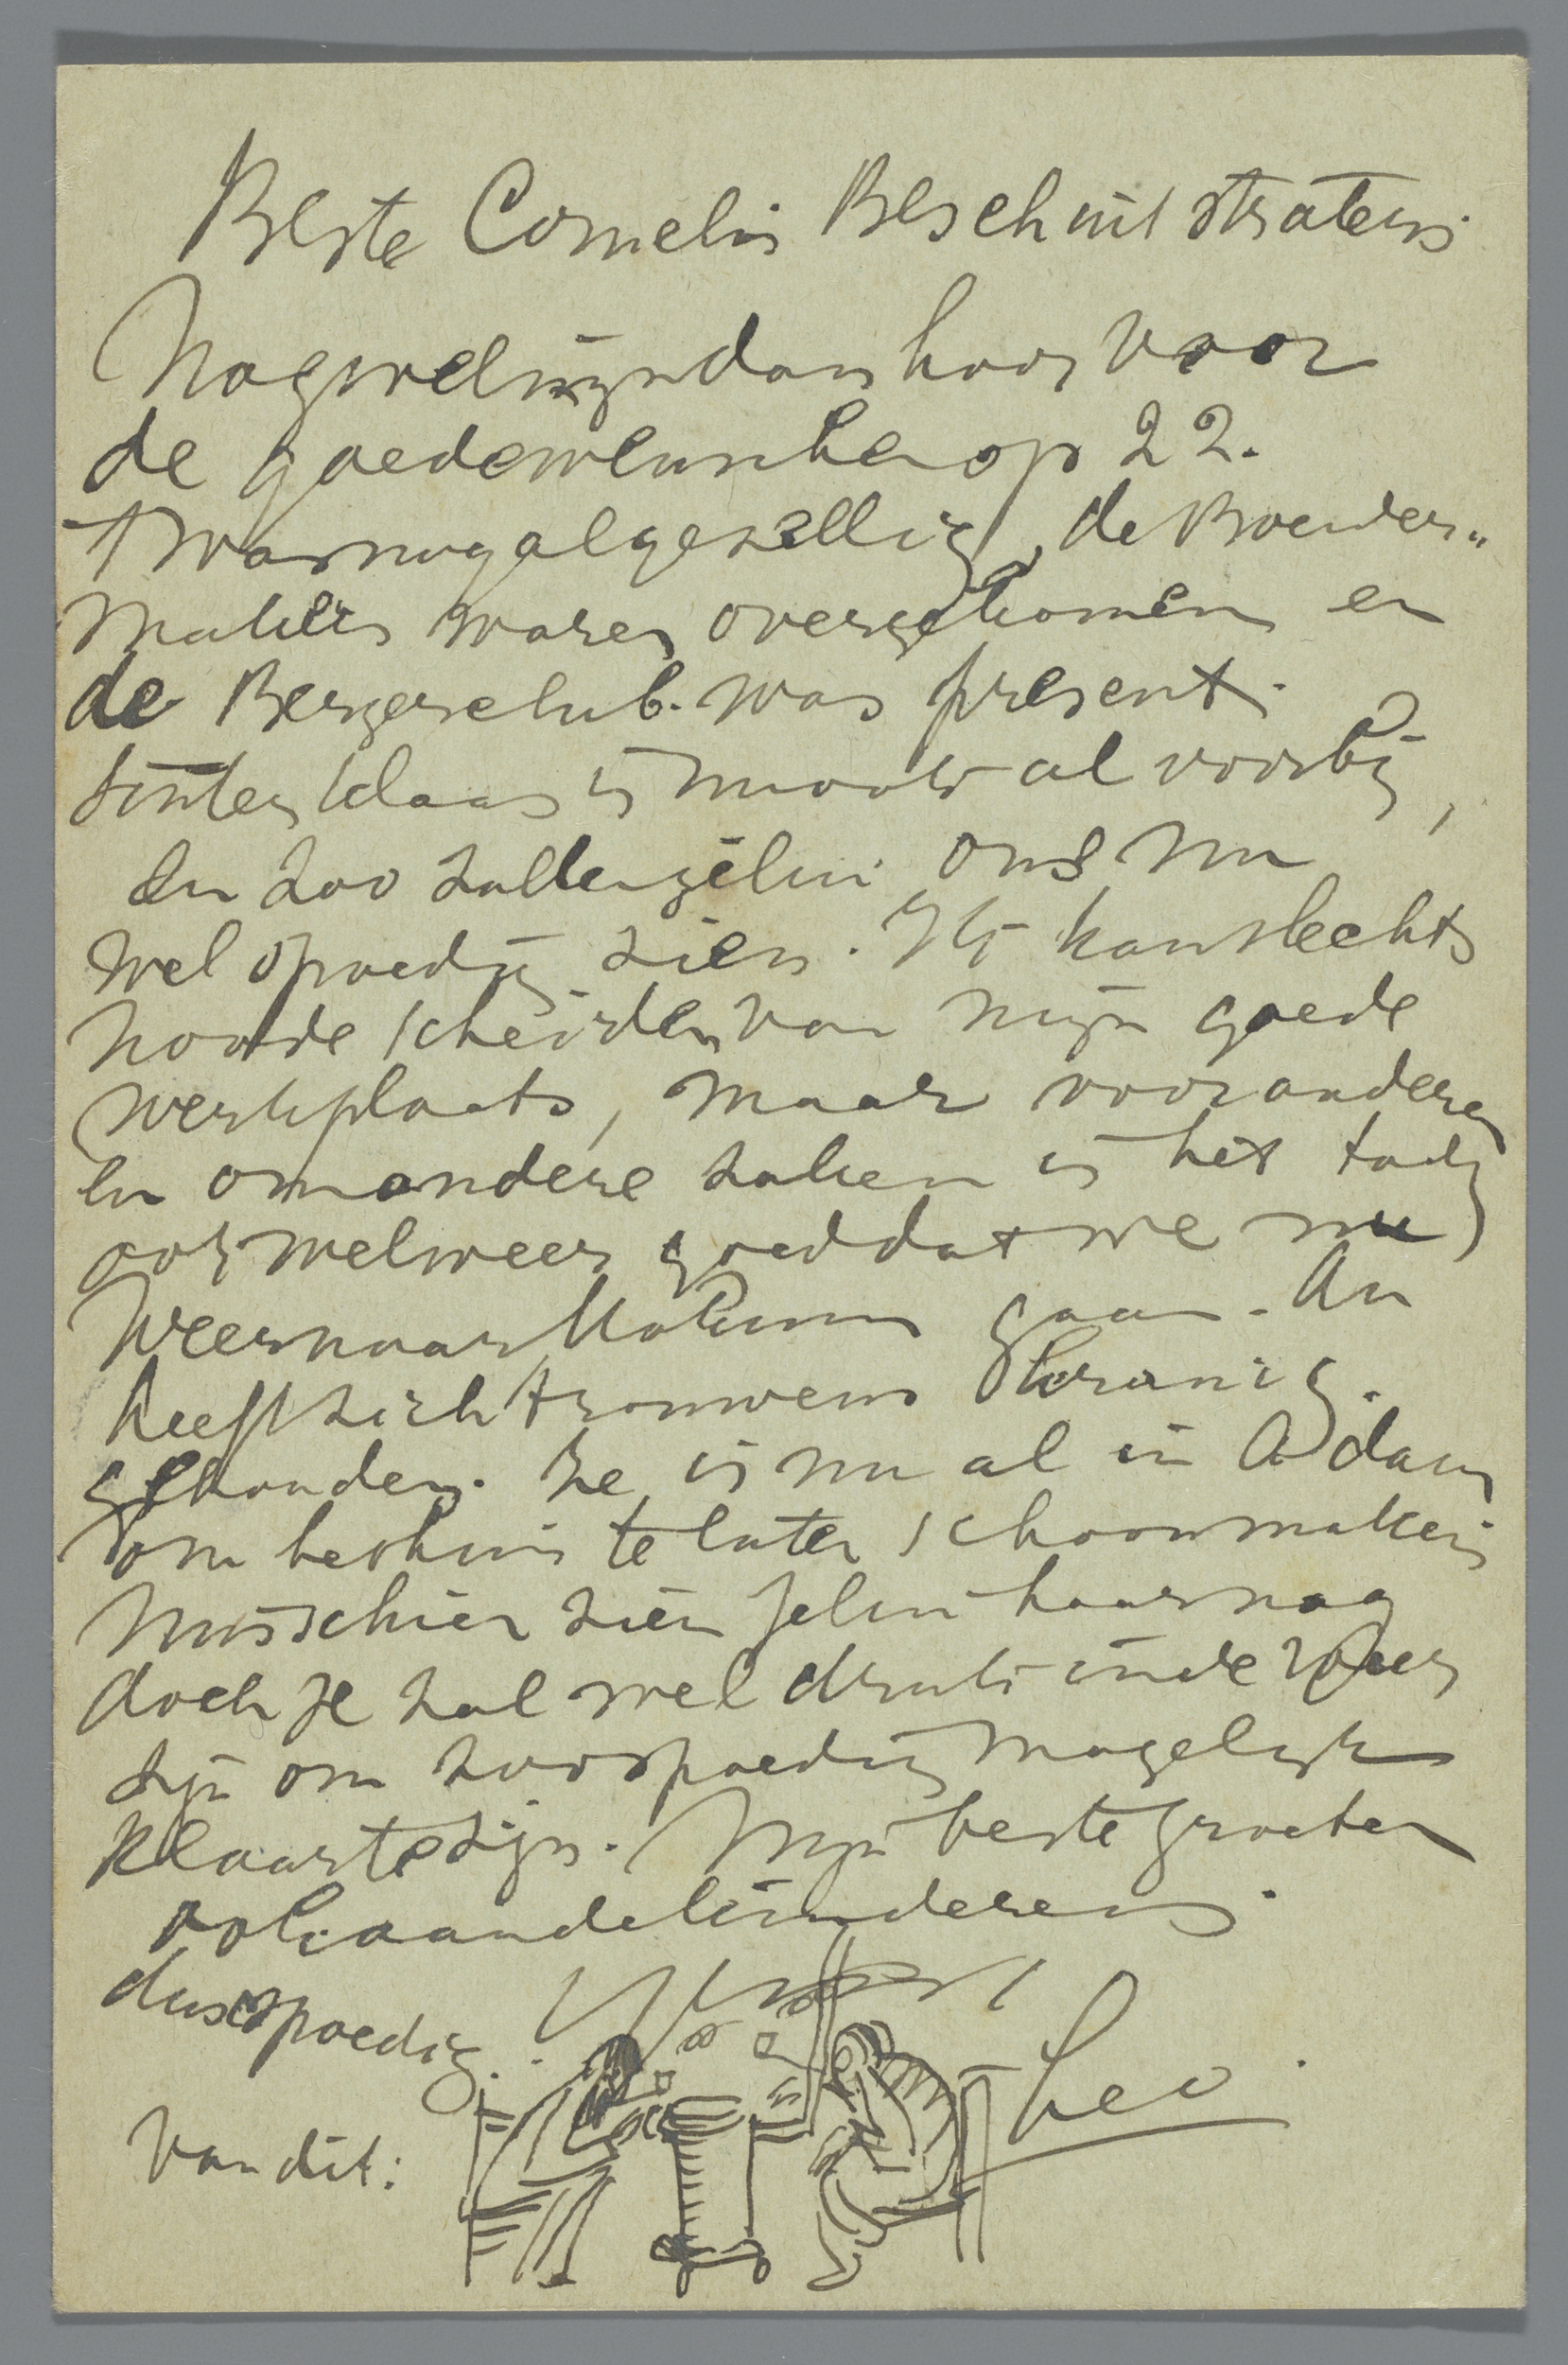 Beste Cornelis Beschuitstraters
Nog wel mijn dank hoor voor
de goede wenschen op 22.
't Was nog al gezellig, de Broeder"
Makkers waren overgekomen en
de Bergerclub. was present.
Sinterklaas is nu ook al voorbij,
En zoo zullen jelui ons nu
wel spoedig zien. Ik kan slechts
noode scheiden van mijn goede
werkplaats, maar voor anderen
en om andere zaken is het toch
ook wel weer goed dat we nu
weer naar Mokum gaan. An
heeft zich trouwens kranig.
gehouden. Ze is nu al in A'dam
om het huis te laten schoonmaken
Misschien zien jelui haar nog
doch ze zal wel druk in de weer
zijn om zoo spoedig mogelijk
klaar te zijn. Mijn beste groeten
ook aan de kinderen.
dus spoedig.
van dit: Leo.